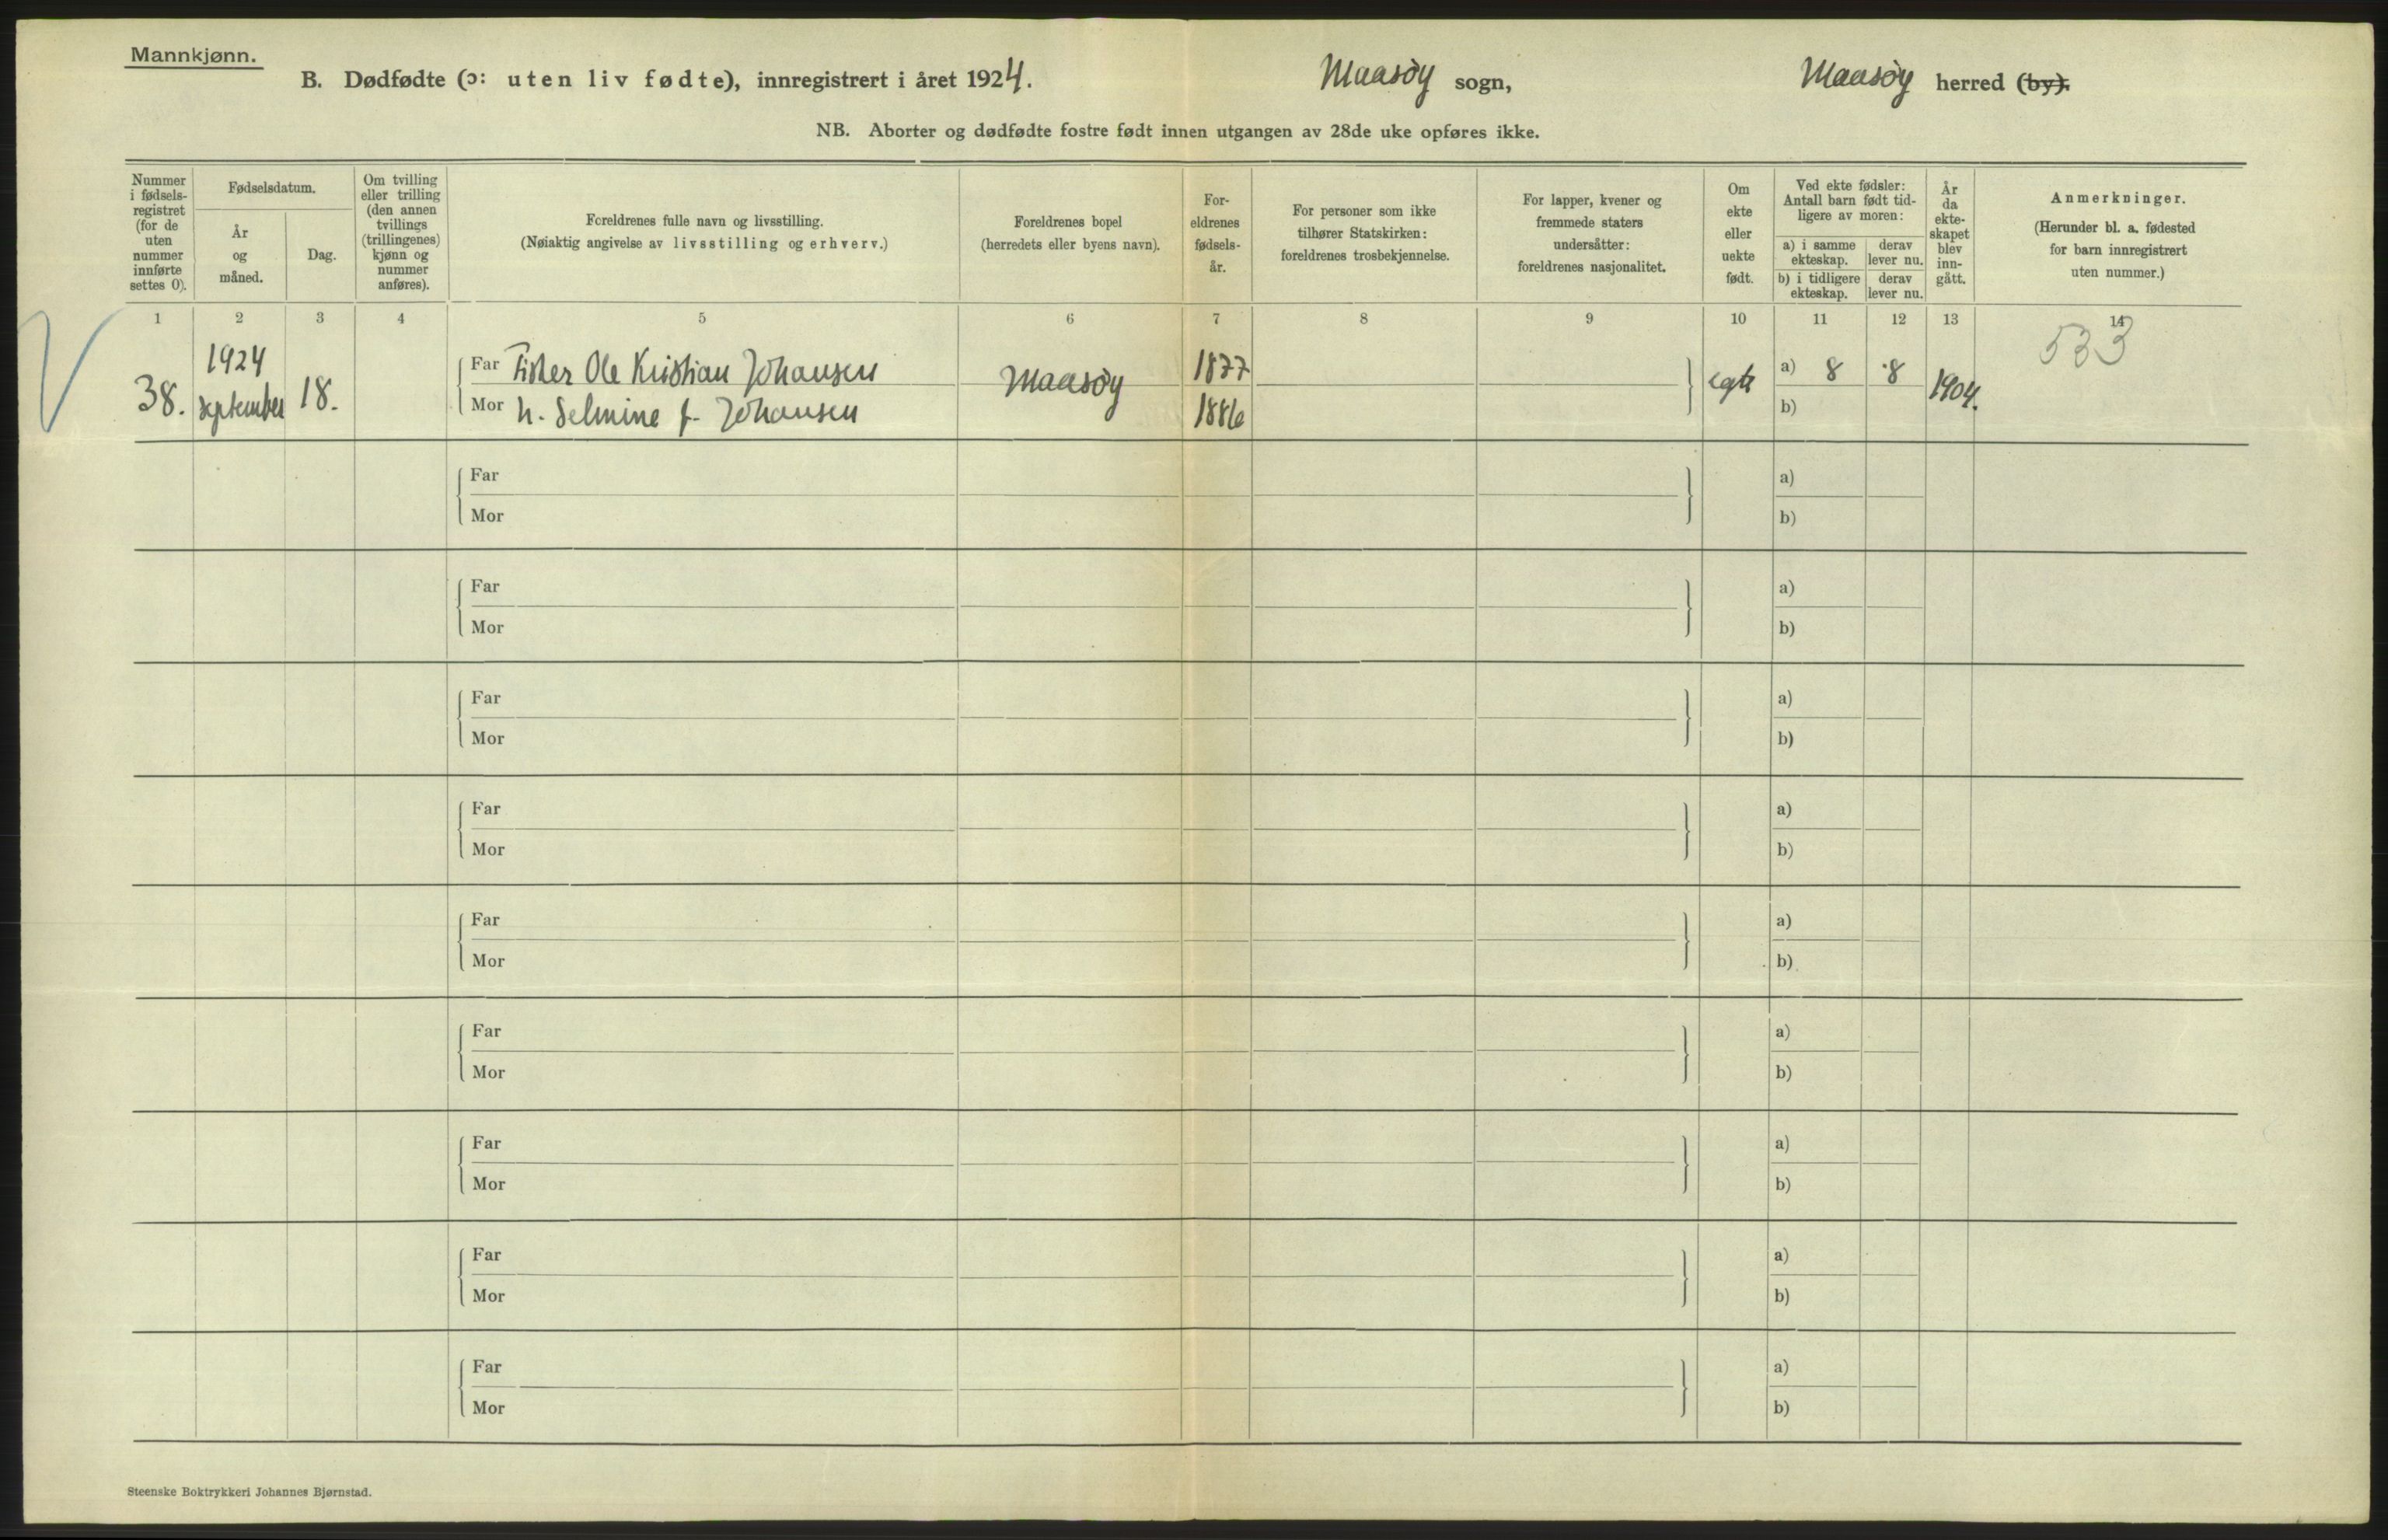 Mannkjønn.
B. Dødfødte (ɔ: uten liv fødte), innregistrert i året 1924. Maasöy sogn, Maasöy herred (by).
NB. Aborter og dødfødte fostre født innen utgangen av 28de uke opføres ikke.
Nummer i fødsels-registret (for de uten nummer innførte settes 0).
Fødselsdatum.
År og måned.
Dag.
Om tvilling eller trilling (den annen tvillings (trillingenes) kjønn og nummer anføres).
Foreldrenes fulle navn og livsstilling.
(Nøiaktig angivelse av livsstilling og erhverv.)
Foreldrenes bopel
(herredets eller byens navn).
For-eldrenes fødsels-år.
For personer som ikke tilhører Statskirken: foreldrenes trosbekjennelse.
For lapper, kvener og fremmede staters undersåtter: foreldrenes nasjonalitet.
Om ekte eller uekte født.
Ved ekte fødsler: Antall barn født tid-ligere av moren:
a) i samme ekteskap. derav lever nu.
b) i tidligere ekteskap. derav lever nu.
År da ekte-skapet blev inn-gått.
Anmerkninger.
(Herunder bl. a. fødested for barn innregistrert uten nummer.)
1 2 3 4 5 6 7 8 9 10 11 12 13 14
533
38. 1924 september 18.
Far Fisker Ole Kristian Johansen Maasöy 1877 egte a) 8 8 1904.
Mor h. Selmine f. Johansen 1886 b)
Far a)
Mor b)
Far a)
Mor b)
Far a)
Mor b)
Far a)
Mor b)
Far a)
Mor b)
Far a)
Mor b)
Far a)
Mor b)
Far a)
Mor b)
Far a)
Mor b)
Steenske Boktrykkeri Johannes Bjørnstad.